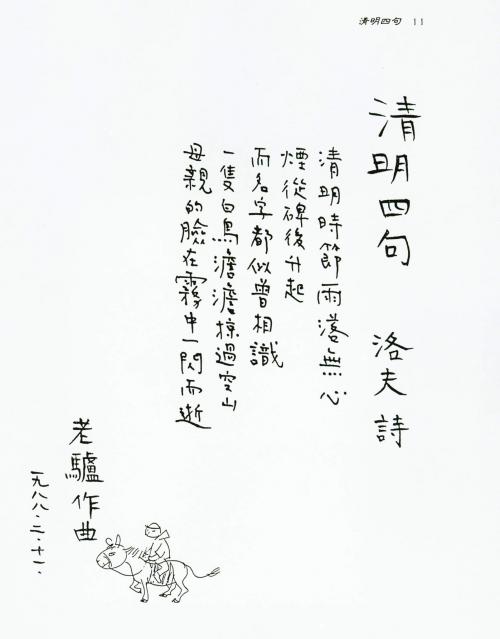 清明四句 11
清明四句 洛夫詩
清明時節雨落無心
煙從碑後升起
而名字都似曾相識
一隻白鳥澹澹掠過空山
母親的臉在霧中一閃而逝
老驢作曲
一九八八.二.十一.